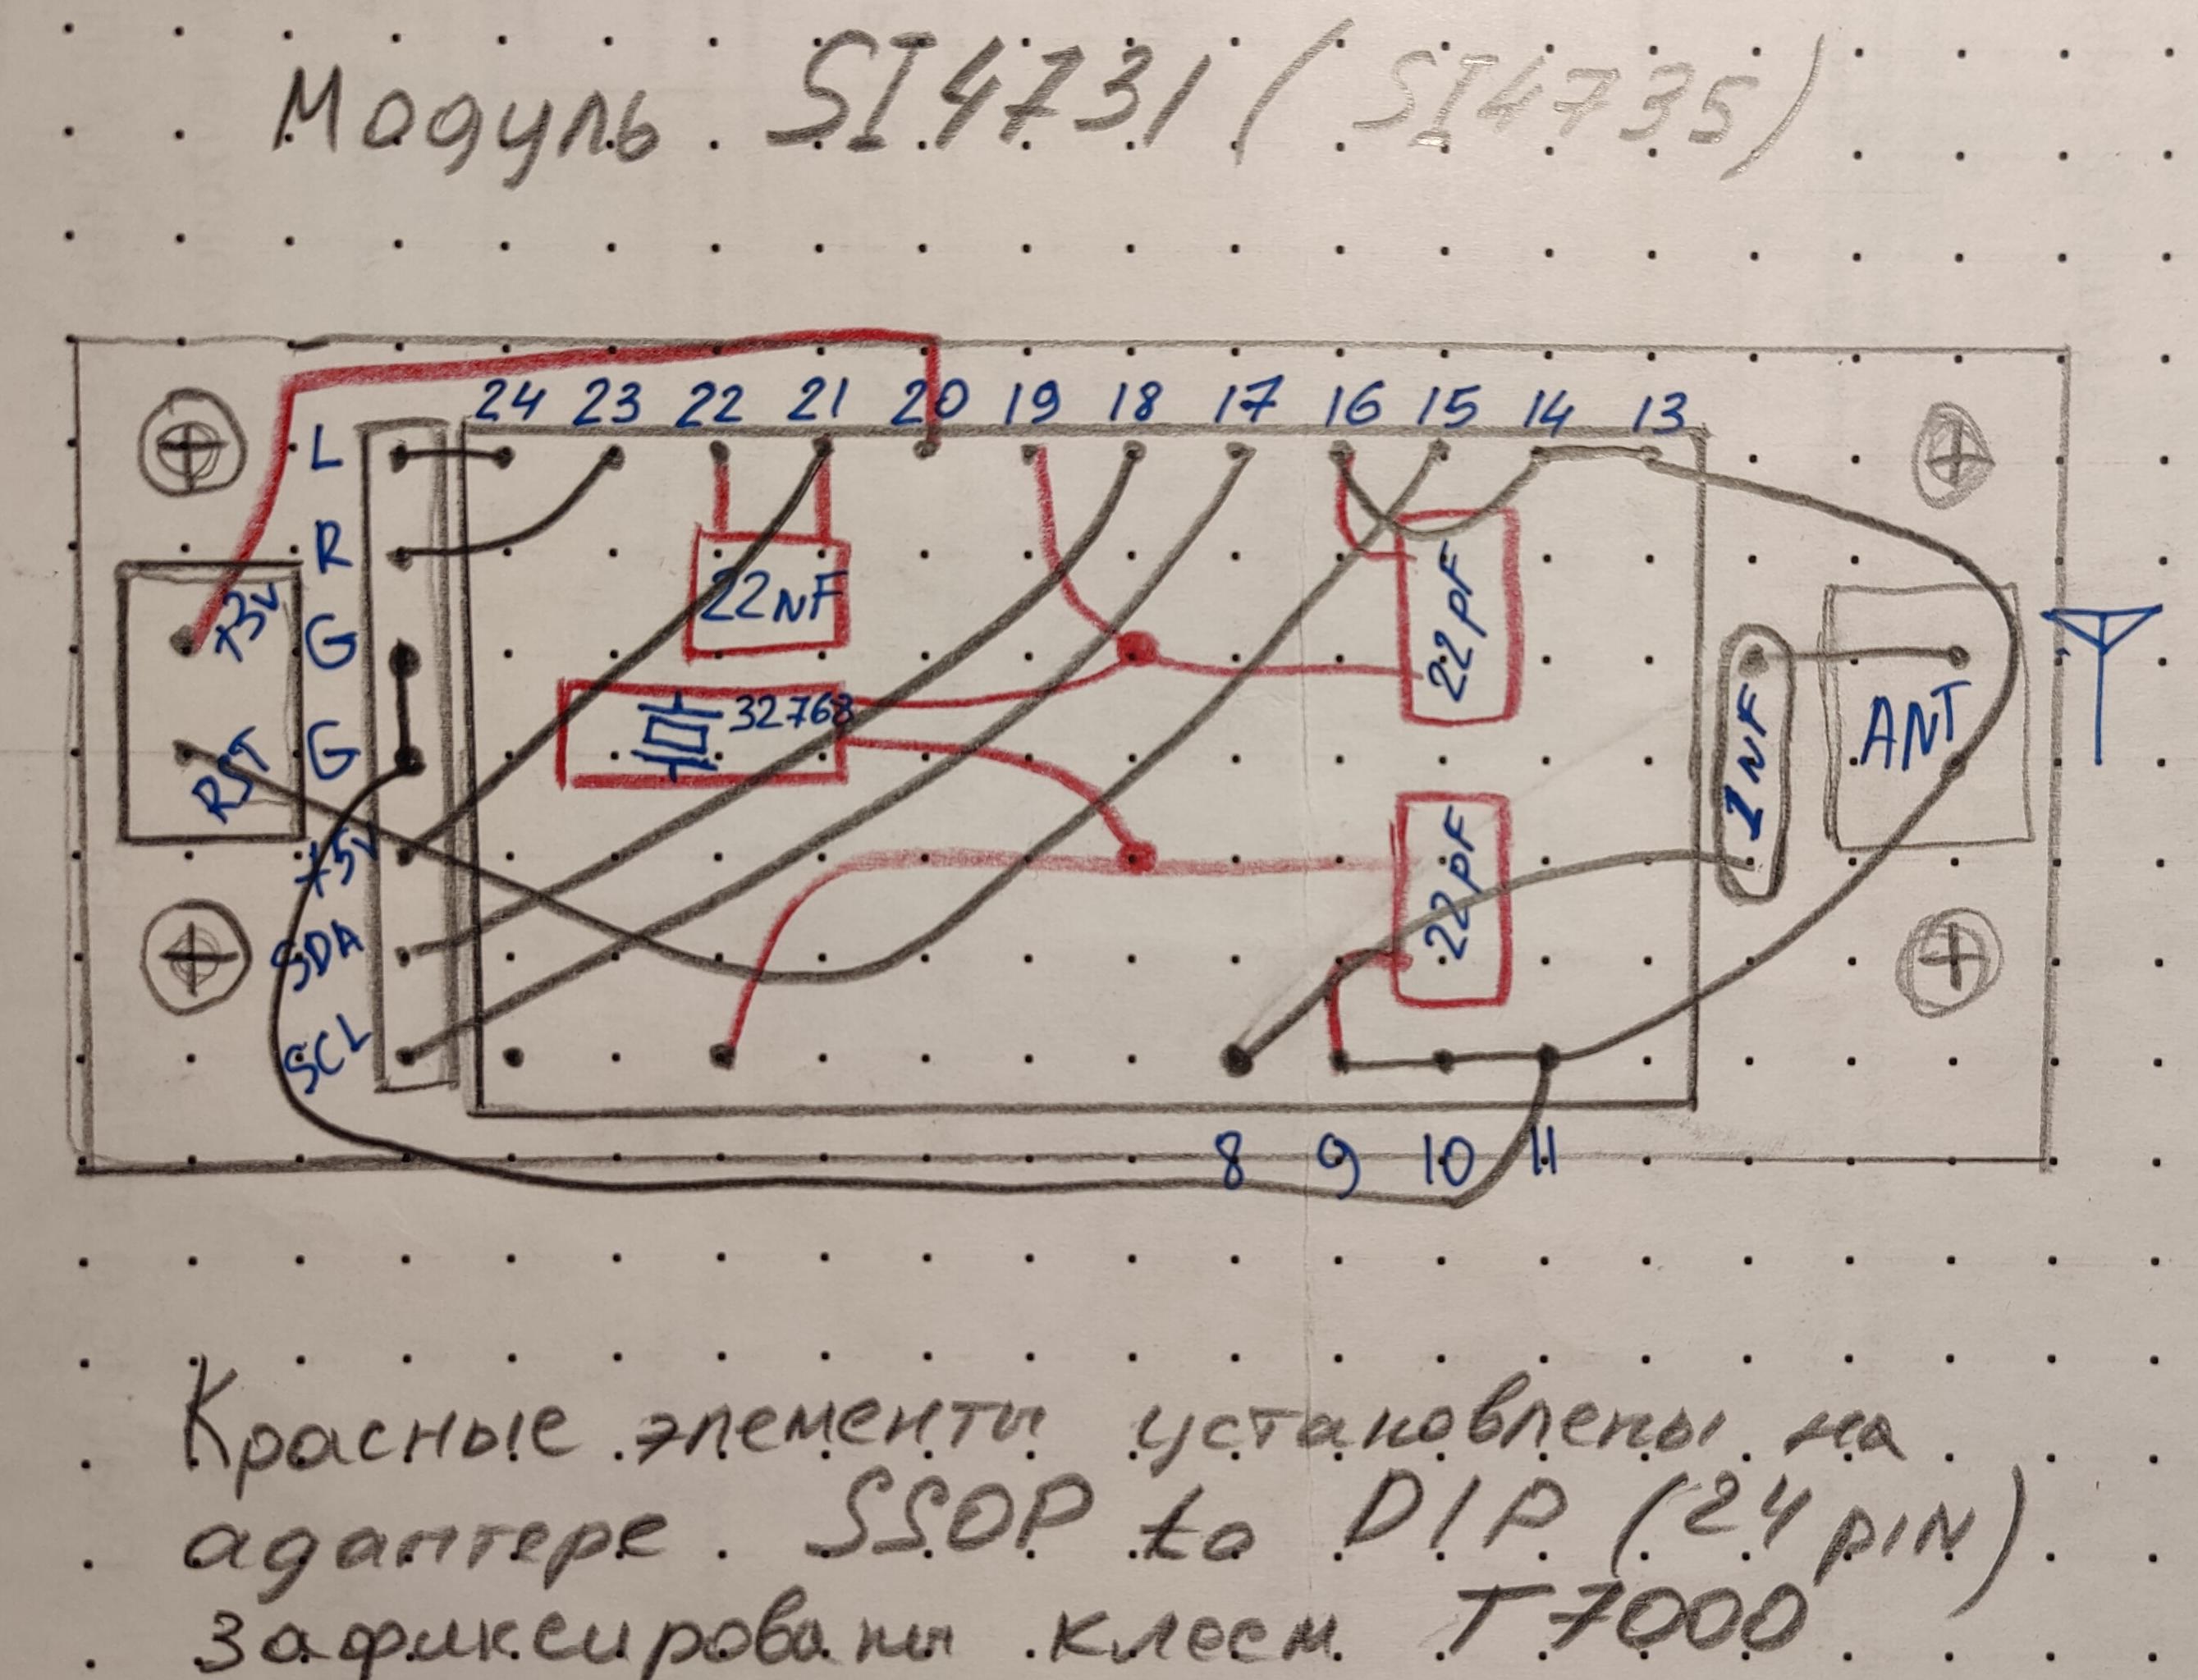 Модуль SI4731 (SI4735)
24 23 22 21 20 19 18 17 16 15 14 13
L
R
G
G
+5V
SDA
SCL
+3V
RST
22NF
32768
22pF
22pF
1NF
ANT
8 9 10 11
Красные элементы установлены на
адаптере SSOP to DIP (24 pIN)
Зафиксированы клеем T7000